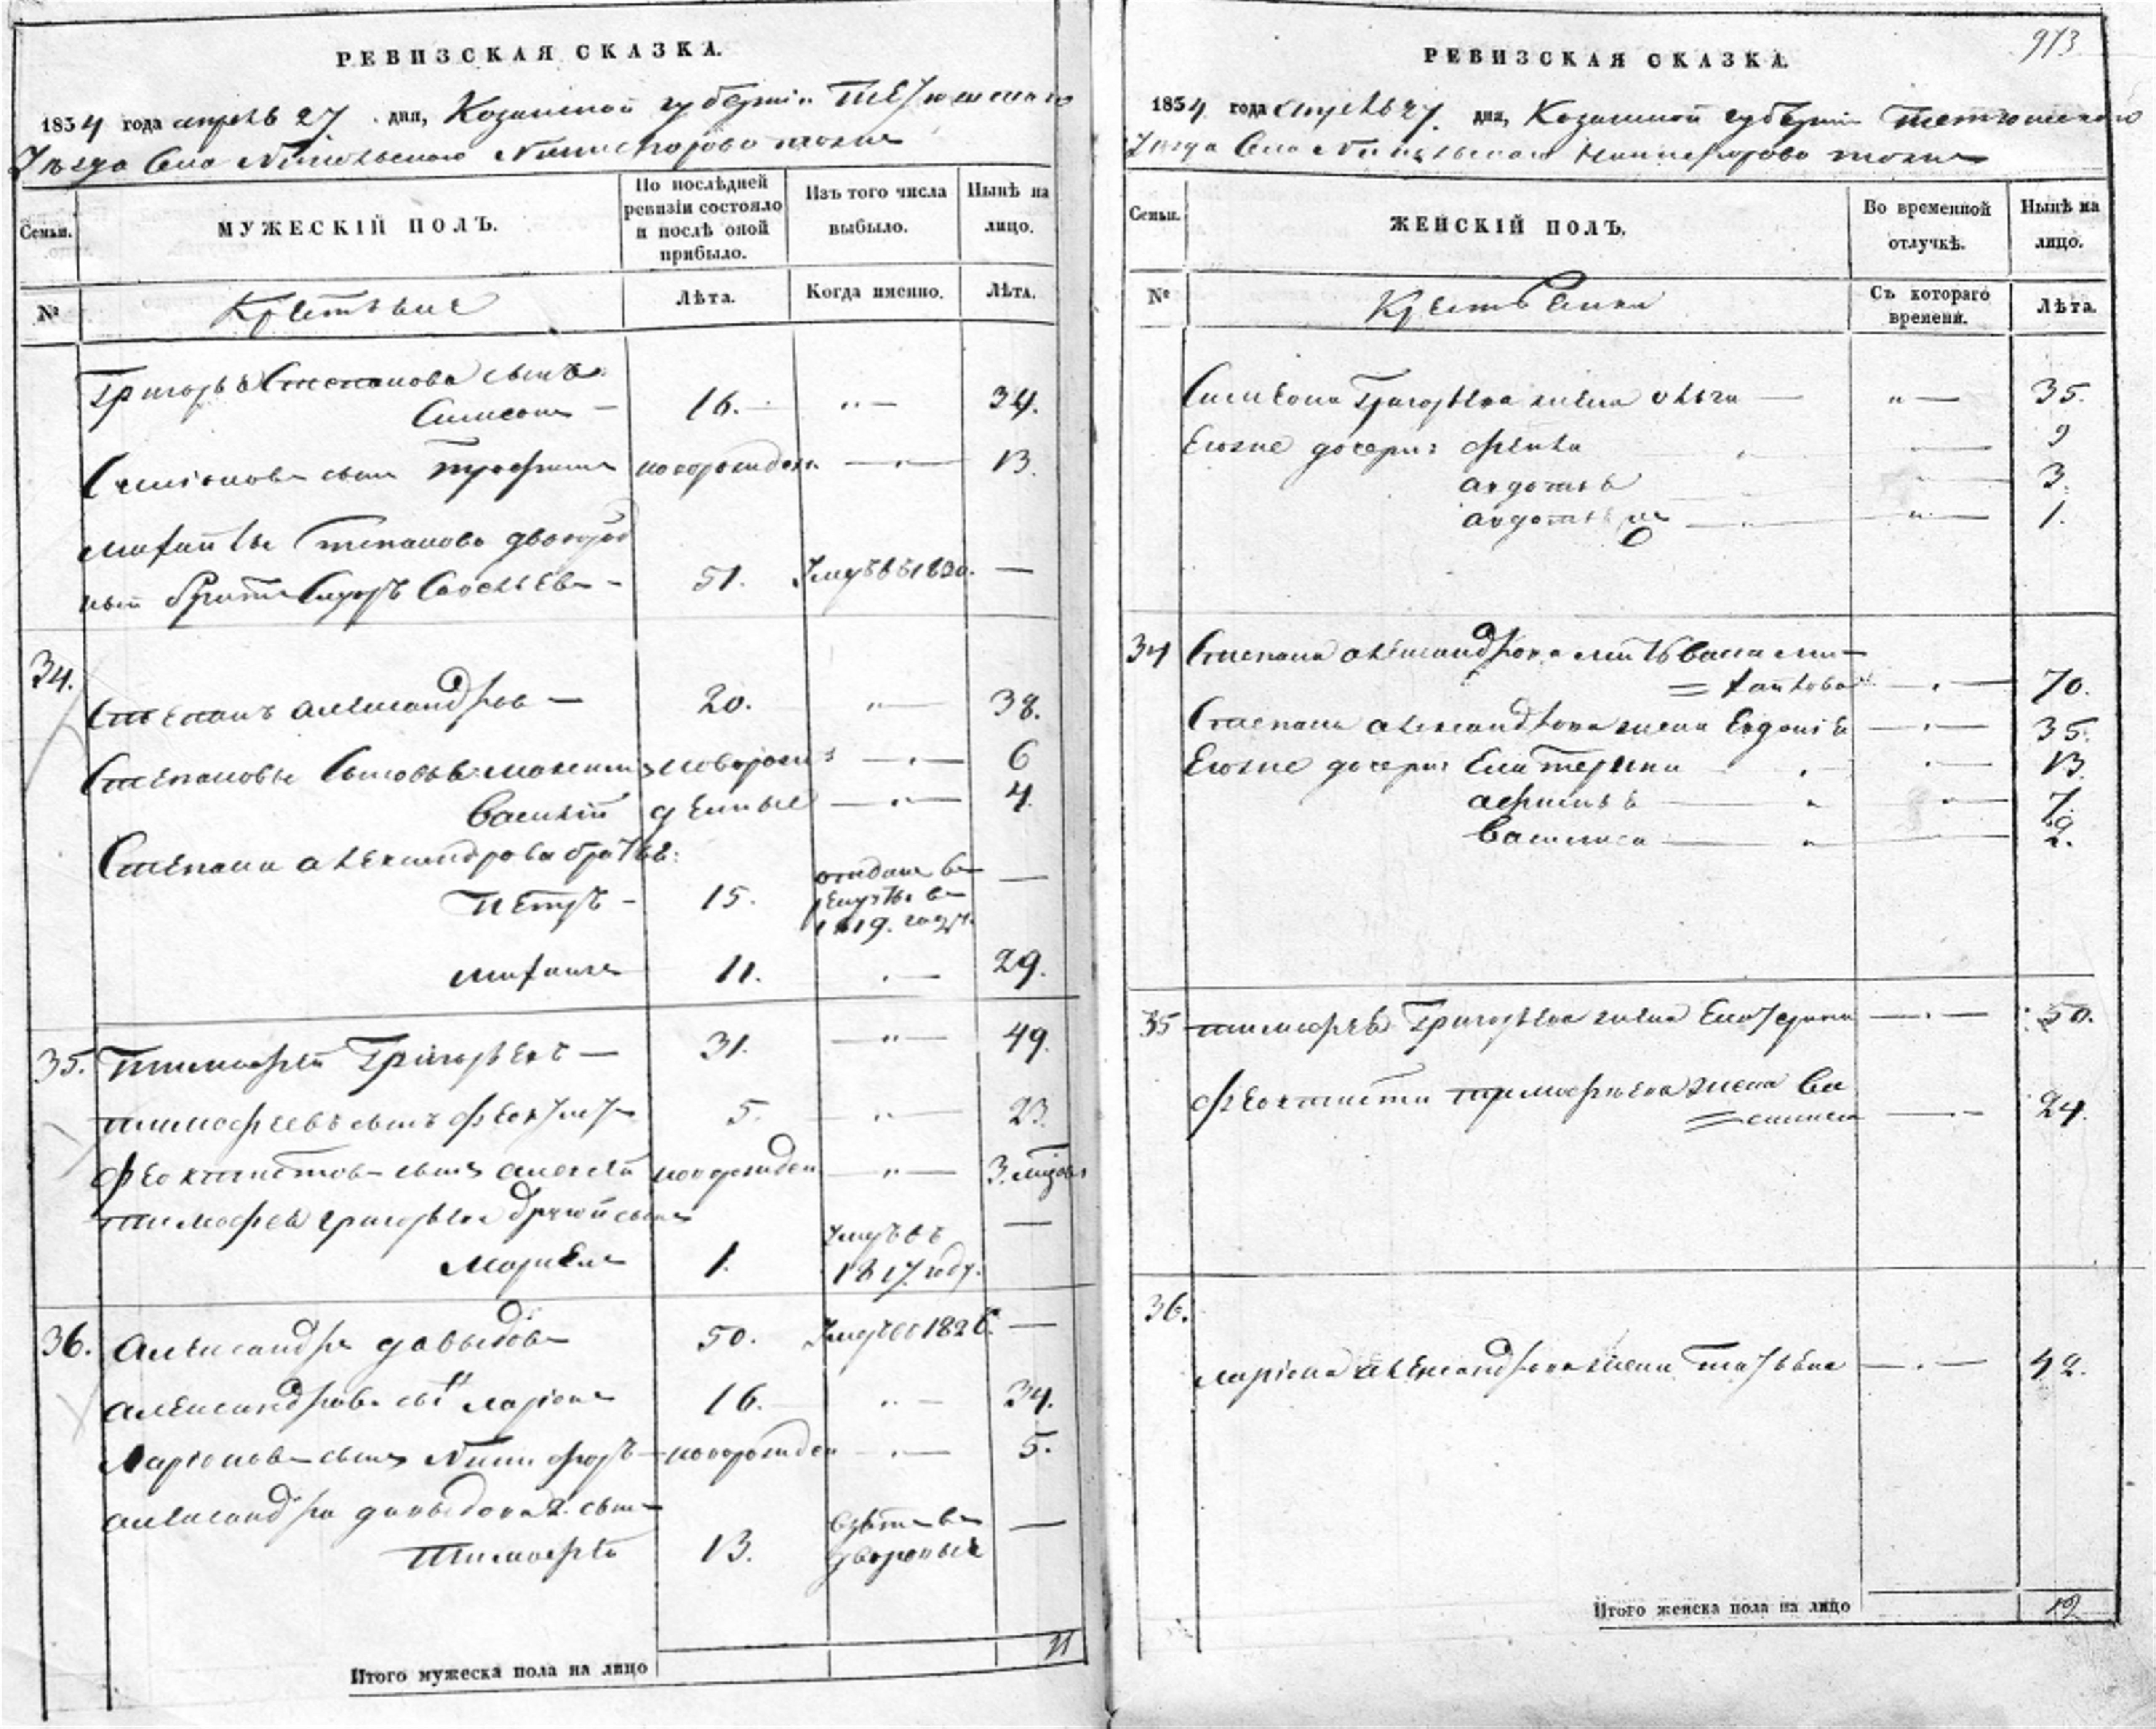 РЕВИЗСКАЯ СКАЗКА.
1834 года апреля 27 дня, Казанской губернии Тетюшскаго
Уезда Села Никольскаго Никифорово тожъ
Семьи.
МУЖЕСКІЙ ПОЛЪ.
По послѣдней ревизіи состояло и послѣ оной прибыло.
Изъ того числа выбыло.
Нынѣ на лицо.
№
Крестьяне
Лѣта.
Когда именно.
Лѣта.
Григорья Степанова сынъ
Симеонъ — 16. „ — 34.
Симіоновъ сынъ Трофимъ новорожден. — „ — 13.
Михайлы Степанова двоюрод
ный братъ Сидоръ Савельевъ - 51. Умръ въ 1830. —
34. Степанъ Александровъ — 20. „ — 38.
Степановы сыновья: Максимъ новорож — „ — 6
Василій денные — „ — 4.
Степана Александрова братья:
Петръ - 15. отданъ въ рекруты въ 1819. году. —
Михайла 11. — 29.
35. Тимофей Григорьевъ — 31. — „ — 49.
Тимофеевъ сынъ Феоктистъ 5. „ — 23.
Феоктистовъ сынъ Алексей новорожден — „ — 3. месяц
Тимофея Григорьева другой сынъ
Маркелъ 1. Умръ въ 1817. году. —
36. Александръ Давыдовъ 50. Умръ въ 1826. —
Александровъ сынъ Ларіонъ 16. „ — 34.
Ларіоновъ сынъ Никифоръ — новорожден — 5.
Александра Давыдова 2. сынъ
Тимофей 13. взятъ въ дворовые —
Итого мужеска пола на лицо 11
913
РЕВИЗСКАЯ СКАЗКА.
1834 года апрель 27. дня, Казанской губерніи Тетюшскаго
Уезда Села Никольскаго Никифорово тожъ
Семьи.
ЖЕНСКІЙ ПОЛЪ.
Во временной отлучкѣ.
Нынѣ на лицо.
№
Крестьянки
Съ котораго времени.
Лѣта.
Симеона Григорьева жена Ольга — „ — 35.
Егоже дочери: Фекла „ — 9
Авдотья „ — 3.
Авдотья же — „ — 1.
34 Степана Александрова мать Васса Ми
= хайлова — „ — 70.
Степана Александрова жена Евдокія — „ — 35.
Егоже дочери: Екатерина „ — 13.
Афимья — „ — 7.
Василиса — „ — 2.
35 Тимофея Григорьева жена Екатерина — „ — 50.
Феоктиста Тимофеева жена Ва
= силиса — „ — 24.
36.
Ларіона Александрова жена Татьяна — „ — 42.
Итого женска пола на лицо 12